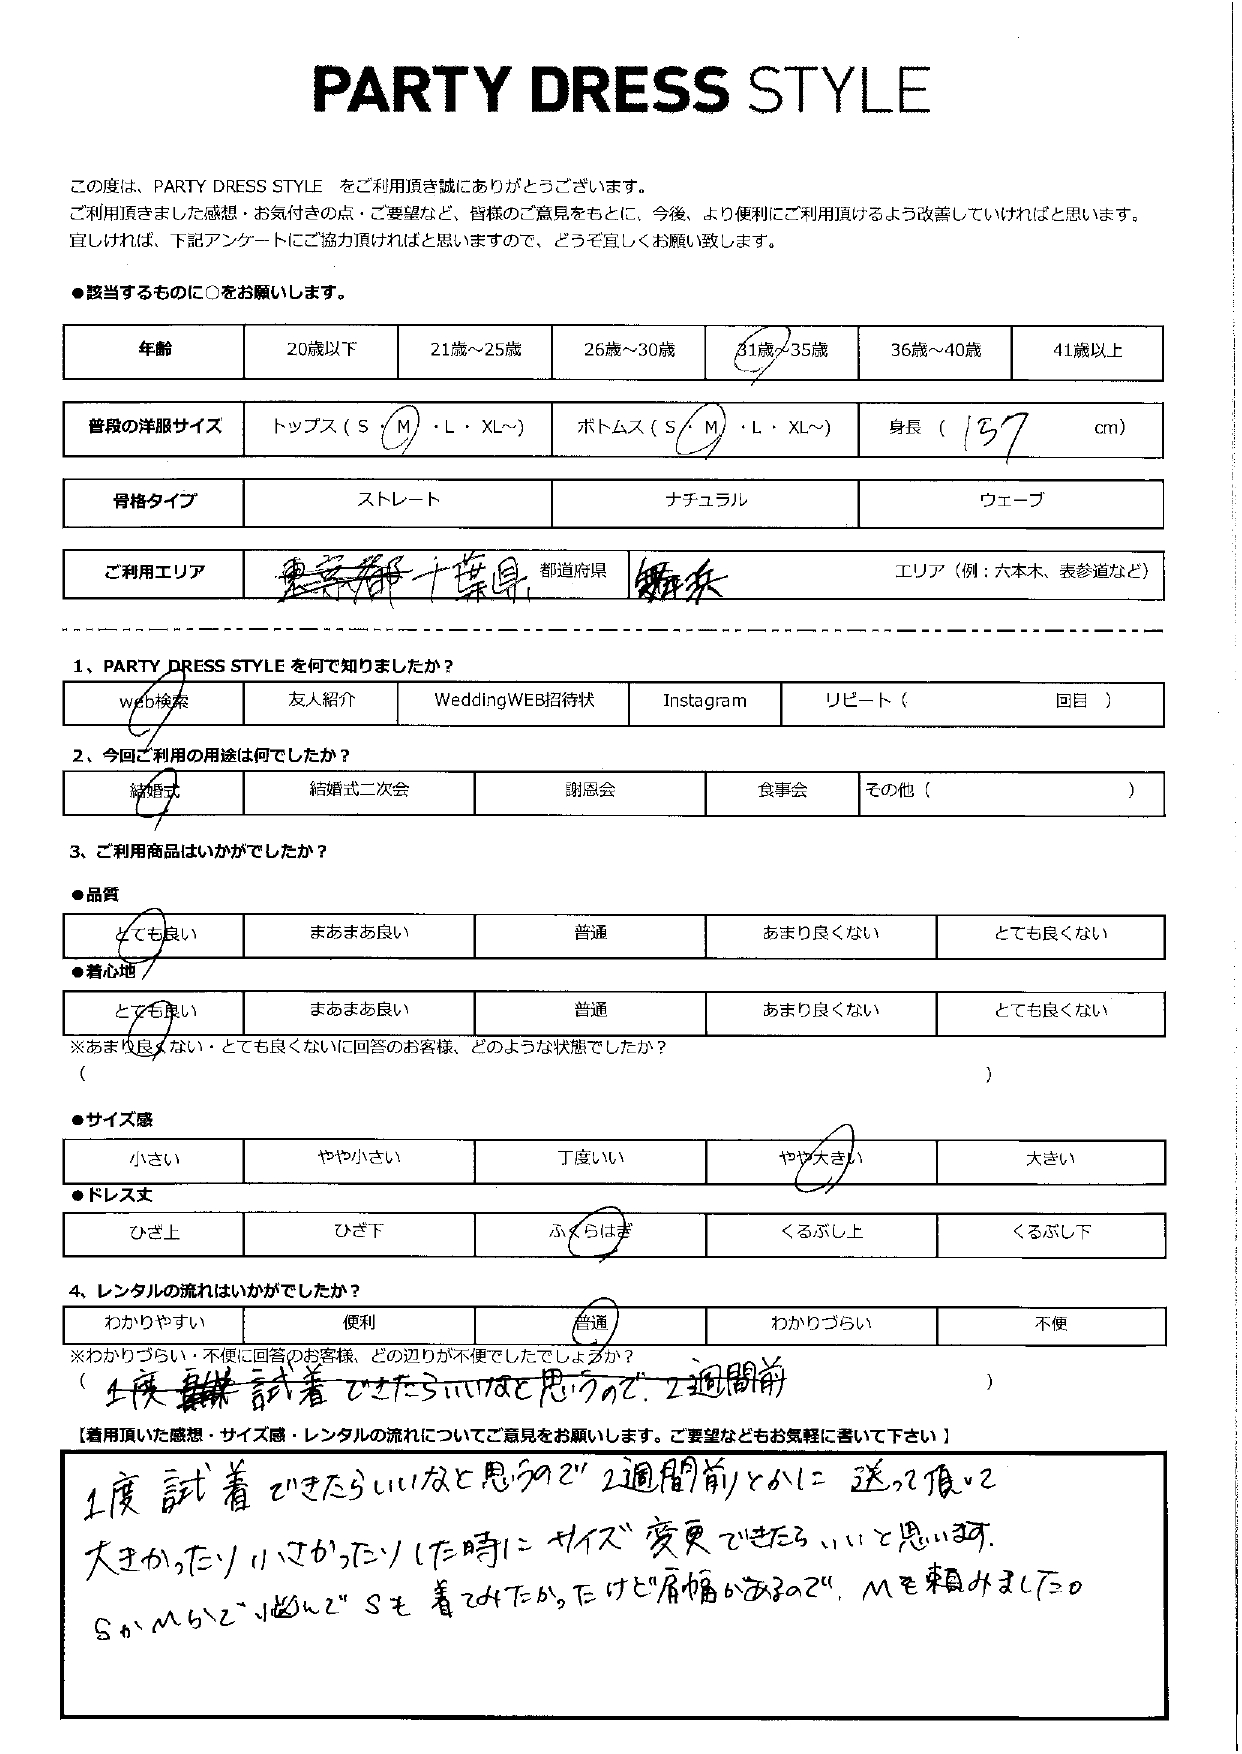 PARTY DRESS STYLE
この度は、PARTY DRESS STYLE をご利用頂き誠にありがとうございます。
ご利用頂きました感想・お気付きの点・ご要望など、皆様のご意見をもとに、今後、より便利にご利用頂けるよう改善していければと思います。
宜しければ、下記アンケートにご協力頂ければと思いますので、どうぞ宜しくお願い致します。
●該当するものに○をお願いします。
年齢 20歳以下 21歳～25歳 26歳～30歳 31歳～35歳 36歳～40歳 41歳以上
普段の洋服サイズ トップス ( S ・ M ・L ・ XL～) ボトムス ( S ・ M ・L ・ XL～) 身長 ( 157 cm)
骨格タイプ ストレート ナチュラル ウェーブ
ご利用エリア 東京都 千葉県 都道府県 舞浜 エリア（例：六本木、表参道など）
1、PARTY DRESS STYLE を何で知りましたか？
web検索 友人紹介 WeddingWEB招待状 Instagram リピート（ 回目 ）
2、今回ご利用の用途は何でしたか？
結婚式 結婚式二次会 謝恩会 食事会 その他（ ）
3、ご利用商品はいかがでしたか？
●品質
とても良い まあまあ良い 普通 あまり良くない とても良くない
●着心地
とても良い まあまあ良い 普通 あまり良くない とても良くない
※あまり良くない・とても良くないに回答のお客様、どのような状態でしたか？
( )
●サイズ感
小さい やや小さい 丁度いい やや大きい 大きい
●ドレス丈
ひざ上 ひざ下 ふくらはぎ くるぶし上 くるぶし下
4、レンタルの流れはいかがでしたか？
わかりやすい 便利 普通 わかりづらい 不便
※わかりづらい・不便に回答のお客様、どの辺りが不便でしたでしょうか？
( 1度 試着 できたらいいなと思うので、2週間前 )
【着用頂いた感想・サイズ感・レンタルの流れについてご意見をお願いします。ご要望などもお気軽に書いて下さい 】
1度 試着 できたらいいなと思うので 2週間前とかに 送って頂いて
大きかったり 小さかったりした時に サイズ変更できたらいいと思います.
SかMかで悩んで Sも着てみたかったけど肩幅があるので、Mを頼みました。